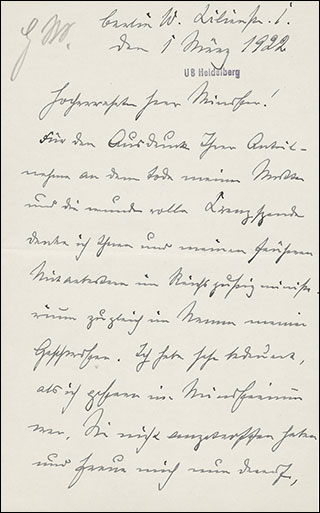 Berlin W.
den 1 März 1922
UB Heidelberg
Hochverehrter Herr Minister!
Für den Ausdruck Ihrer Anteil-
nahme an dem Tode meiner Mutter
und die wundervolle Kranzspende
danke ich Ihnen und meinen früheren
Mitarbeitern im Reichsjustizministe-
rium zugleich im Namen meiner
Geschwister. Ich habe sehr bedauert,
als ich gestern im Ministerium
war, Sie nicht angetroffen haben
und freue mich nun darauf,